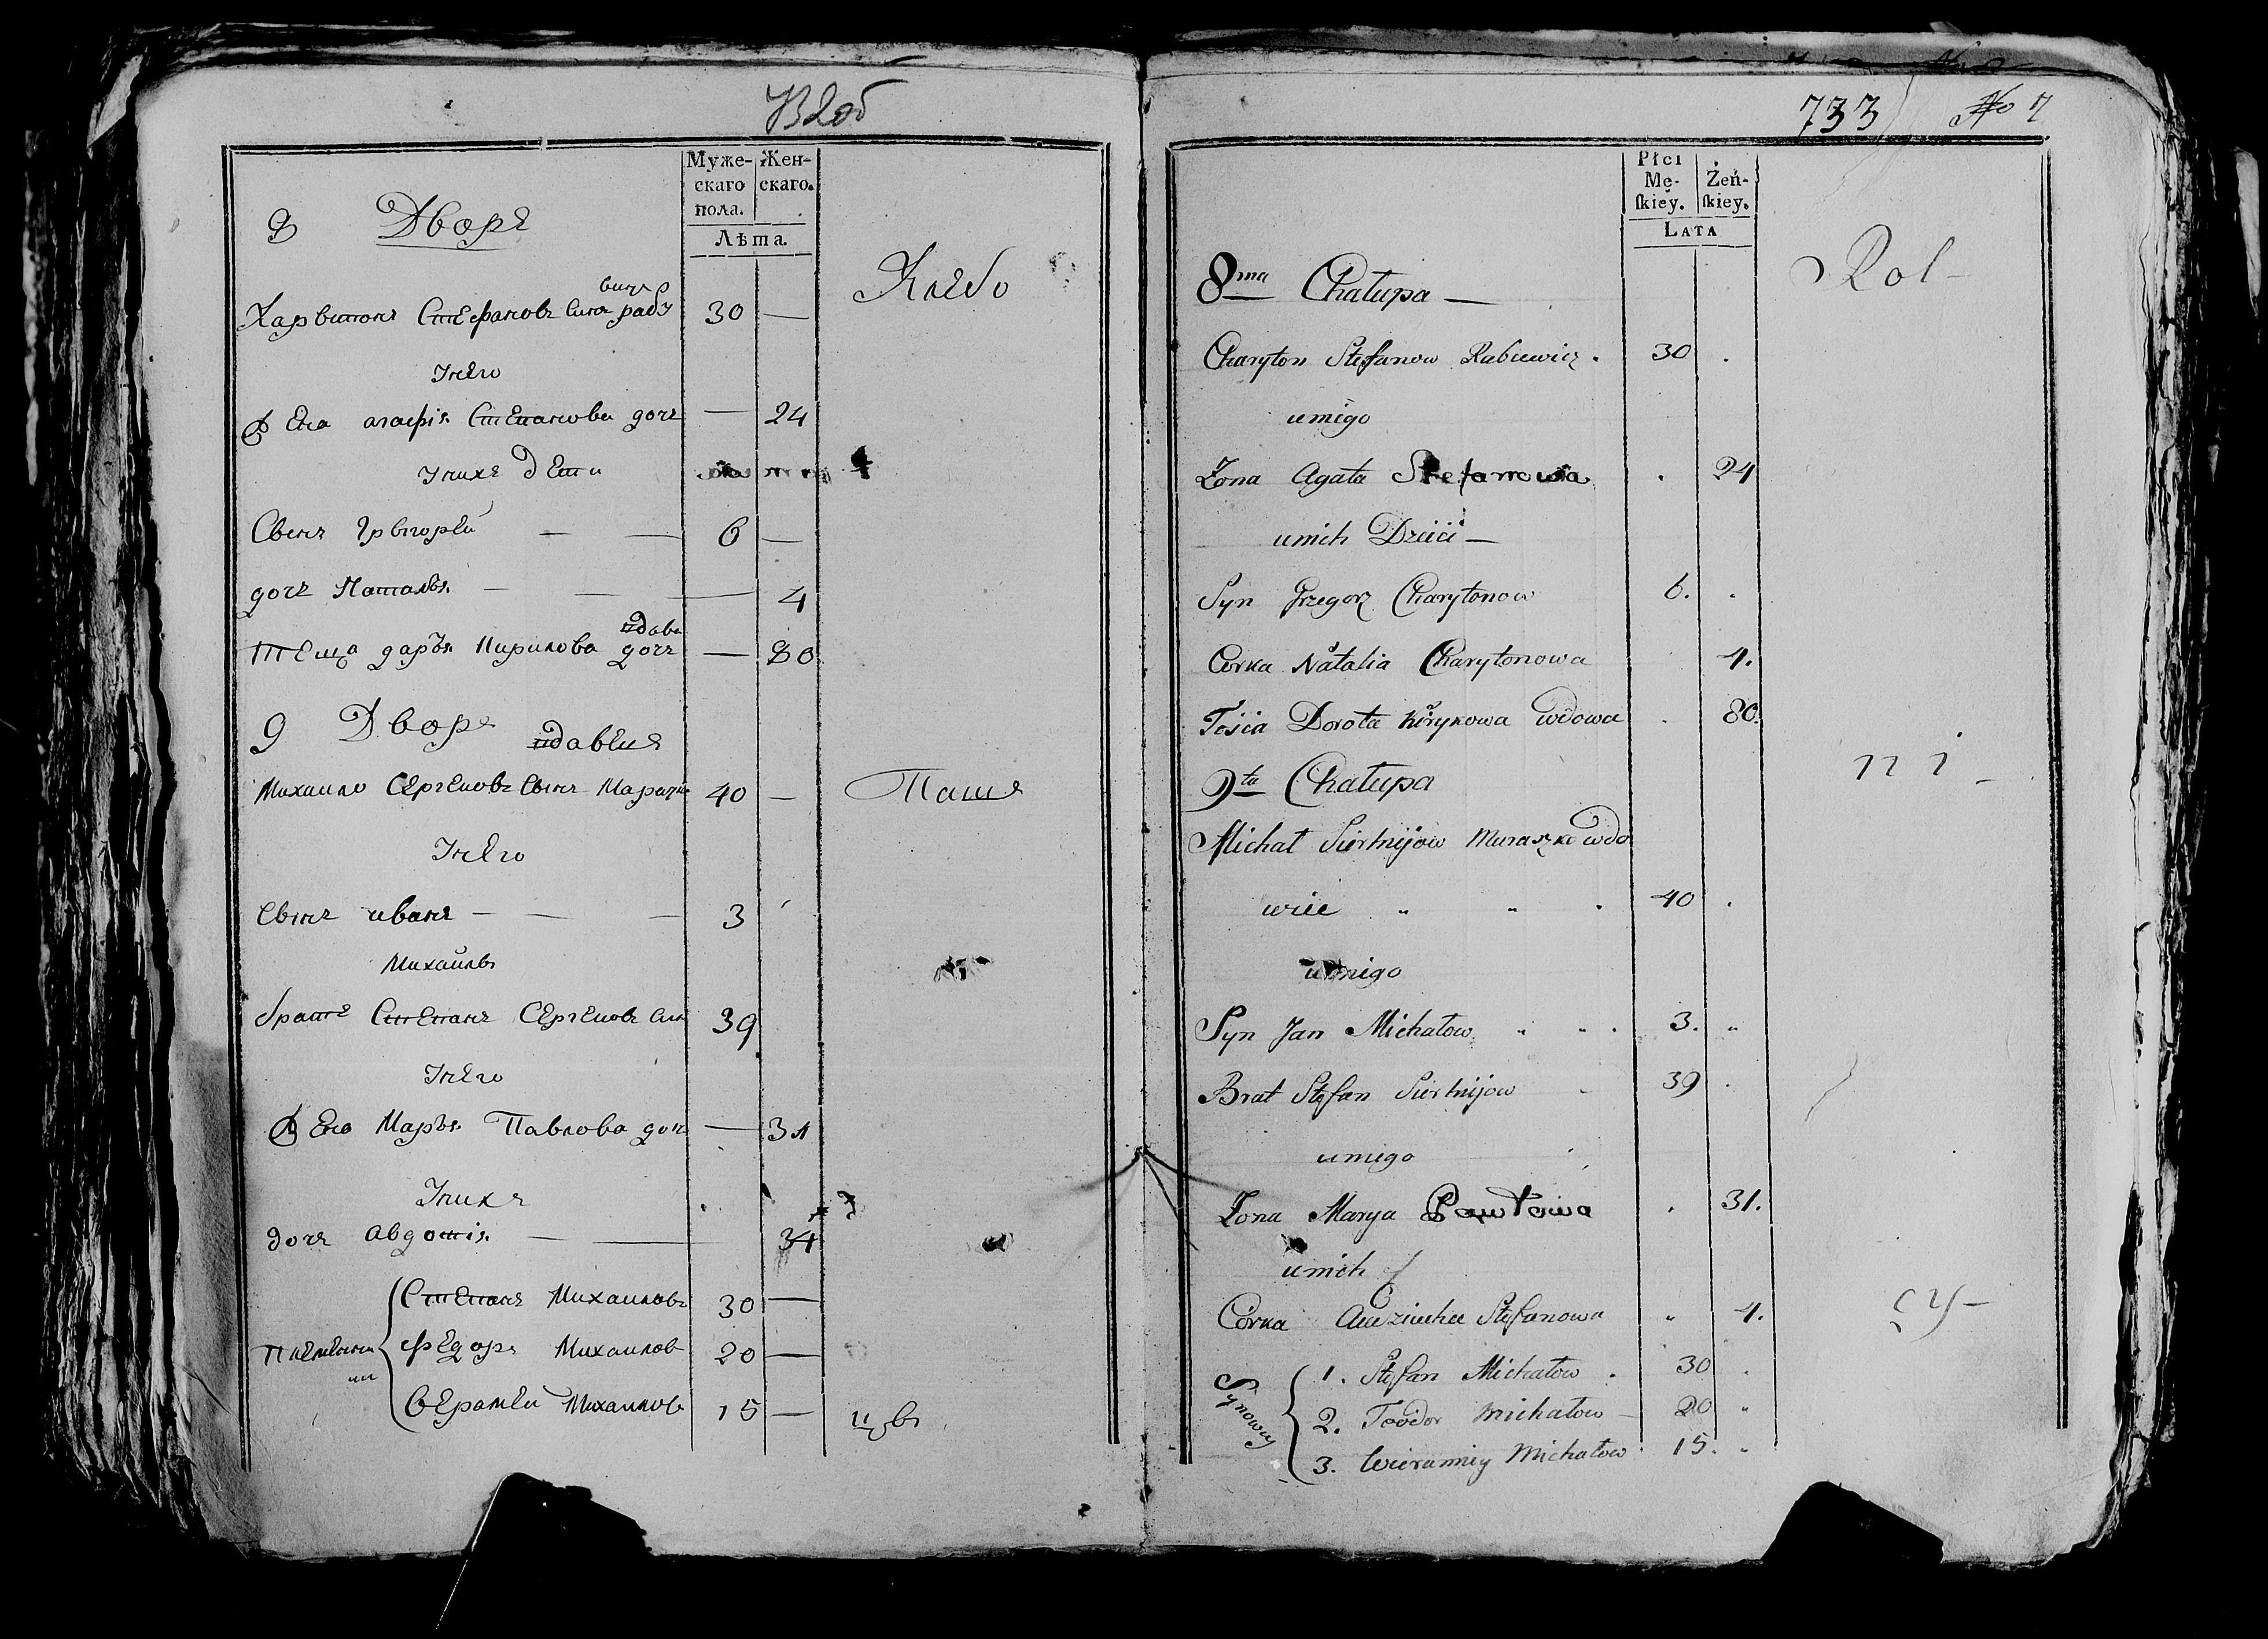 Муже-
скаго
пола.
Жен-
скаго.
Лѣта.
8 Дворъ
Хлебо
вичъ
Харвитонъ Стефановъ сынъ рабу 30 —
Унего
Жена агафія Степанова дочь — 24
Унихъ дети
Сынъ Григорей — — 6 —
дочь Наталья — — — 4
вдова
Теща дарья Кирилова дочь — 80
9 Дворъ
вдавецъ
Михаило Сергеновъ сынъ Мараш 40 — Паше
Унего
сынъ иванъ — — — 3
Михаилы
братъ Степанъ Сергеновъ сын 39
Унего
Жена Марья Павлова доч — 31
Унихъ
дочь Авдотія — — 4
Племени
ки
Степанъ Михаиловъ 30 —
Федоръ Михаиловъ 20 —
Верамей Михаиловъ 15 — цы
733 No 7
Płci
Mę-
ſkiey.
Żeń-
ſkiey.
LATA
8ma Chałupa — Rol-
Charyton Stefanow Rabcewicz . 30 .
uniego
Zona Agata Stefanowa . 24
unich Dzieci —
Syn Grzegorz Charytonow 6. .
Corka Natalia Charytonowa 4.
Teścia Dorota Kirykowa wdowa . 80.
9ta Chałupa ni-
Michał Sierhijow Muraszko wdo
wiec " " . 40 .
uniego
Syn Jan Michałow " " . 3. "
Brat Stefan Sierhijow - 39 .
uniego
Zona Marya Pawłowa . 31.
unich
Corka Audziucha Stefanowa " 4. cy-
Synowcy
1. Stefan Michałow . 30 .
2. Teodor Michałow — 20 "
3. Wieramiey Michałow 15. "